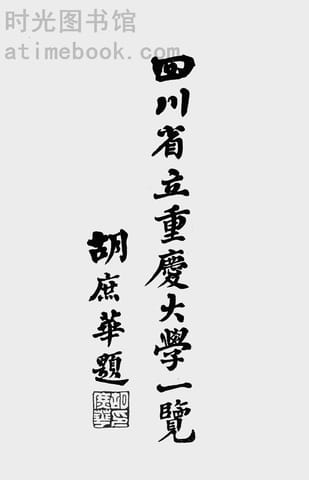 时光图书馆
atimebook.com
四川省立重慶大學一覽
胡庶華題